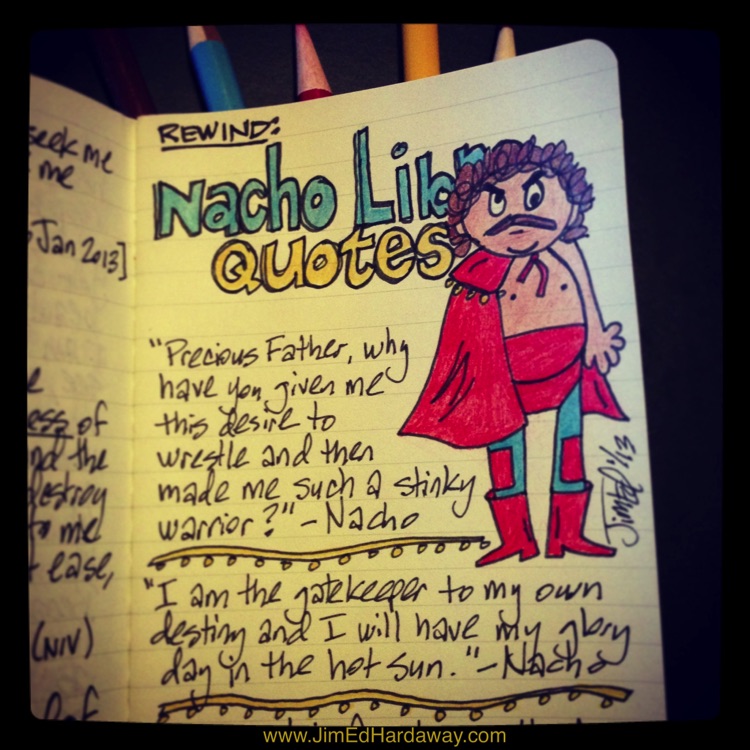 seek me
me
Jan 2013]
ess of
nd the
destroy
to me
ease,
(NIV)
of
REWIND:
Nacho Lib
Quotes
"Precious Father, why
have you given me
this desire to
wrestle and then
made me such a stinky
warrior?" - Nacho
"I am the gatekeeper to my own
destiny and I will have my glory
day in the hot sun." - Nacho
JimEd 1/13
www.JimEdHardaway.com